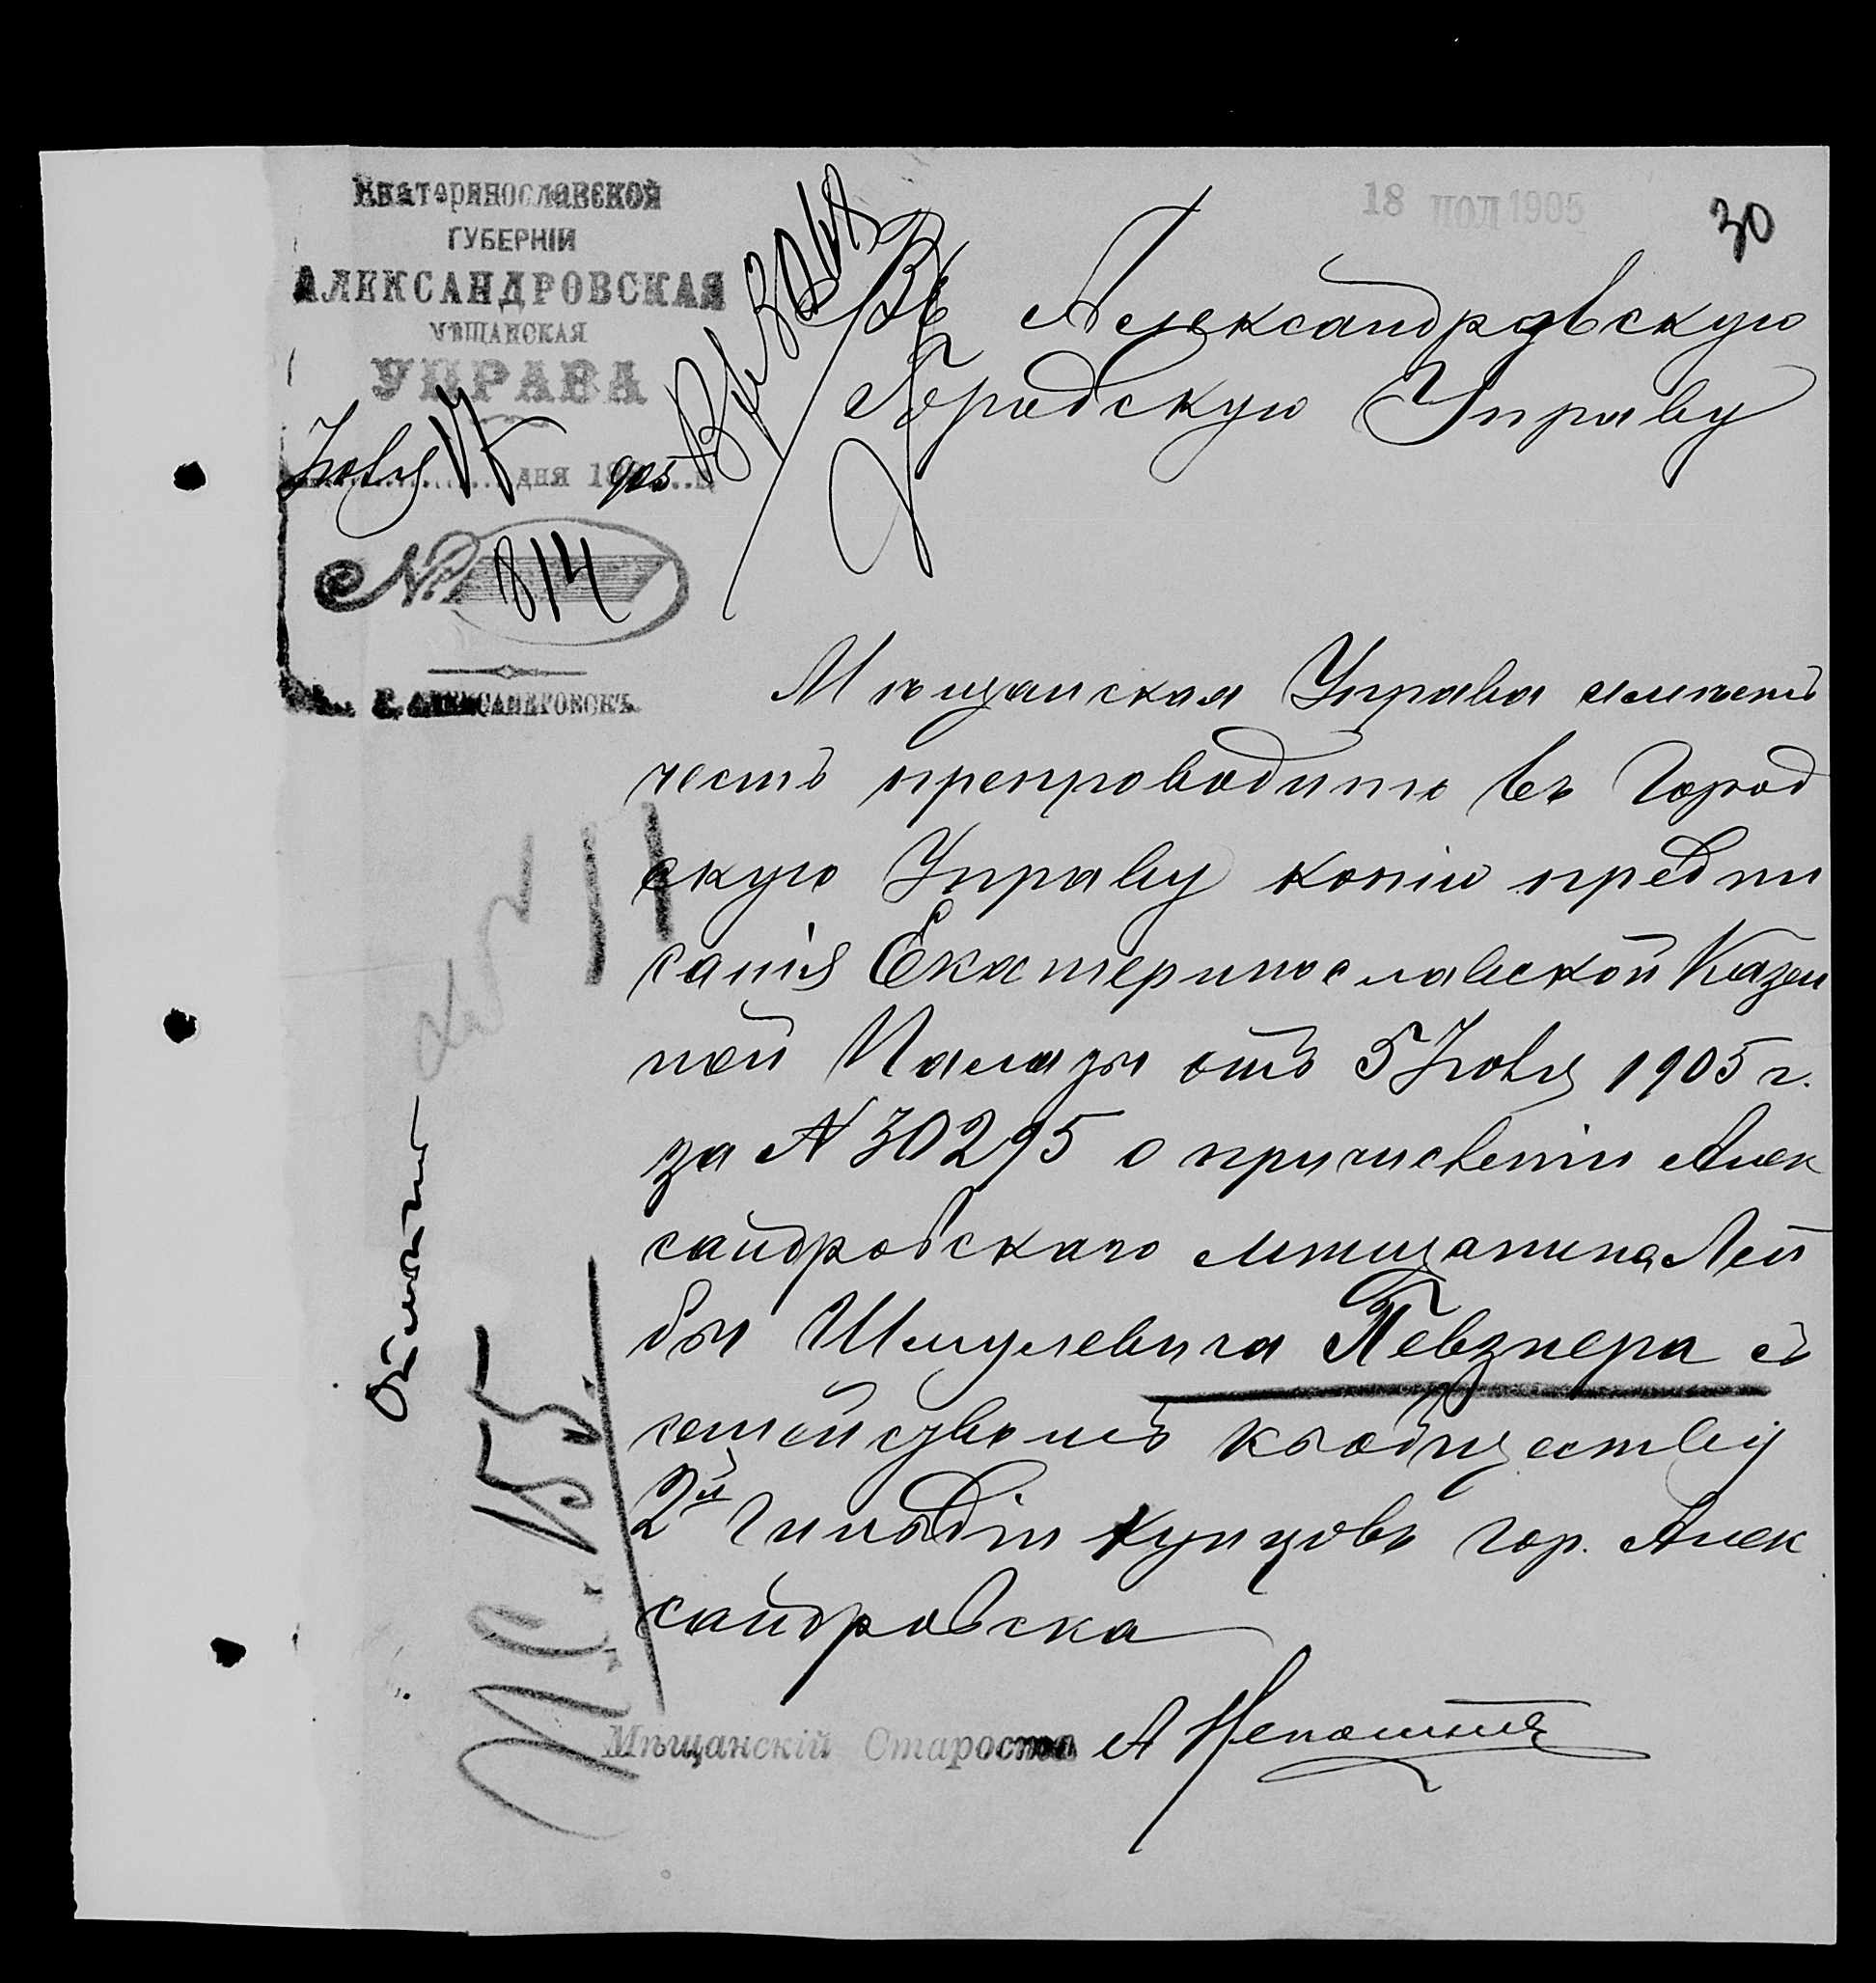 Екатеринославской
ГУБЕРНІИ
АЛЕКСАНДРОВСКАЯ
МѢЩАНСКАЯ
УПРАВА
Іюля 17 дня 1905 г.
№ 814
Г. АЛЕКСАНДРОВСКЪ.
18 ІЮЛ 1905
30
Въ Александровскую
Городскую Управу
Мѣщанская Управа имѣетъ
честь препроводить въ Город
скую Управу копію предпи
санія Екатеринославской Казен
ной Палаты отъ 5 Іюля 1905 г.
за № 30295 о причисленіи Алек
сандровскаго мѣщанина Лей
бы Шмулевича Певзнера съ
семействомъ къ обществу
2й Гильдіи купцовъ гор. Алек
сандровска
Мѣщанскій Староста
155